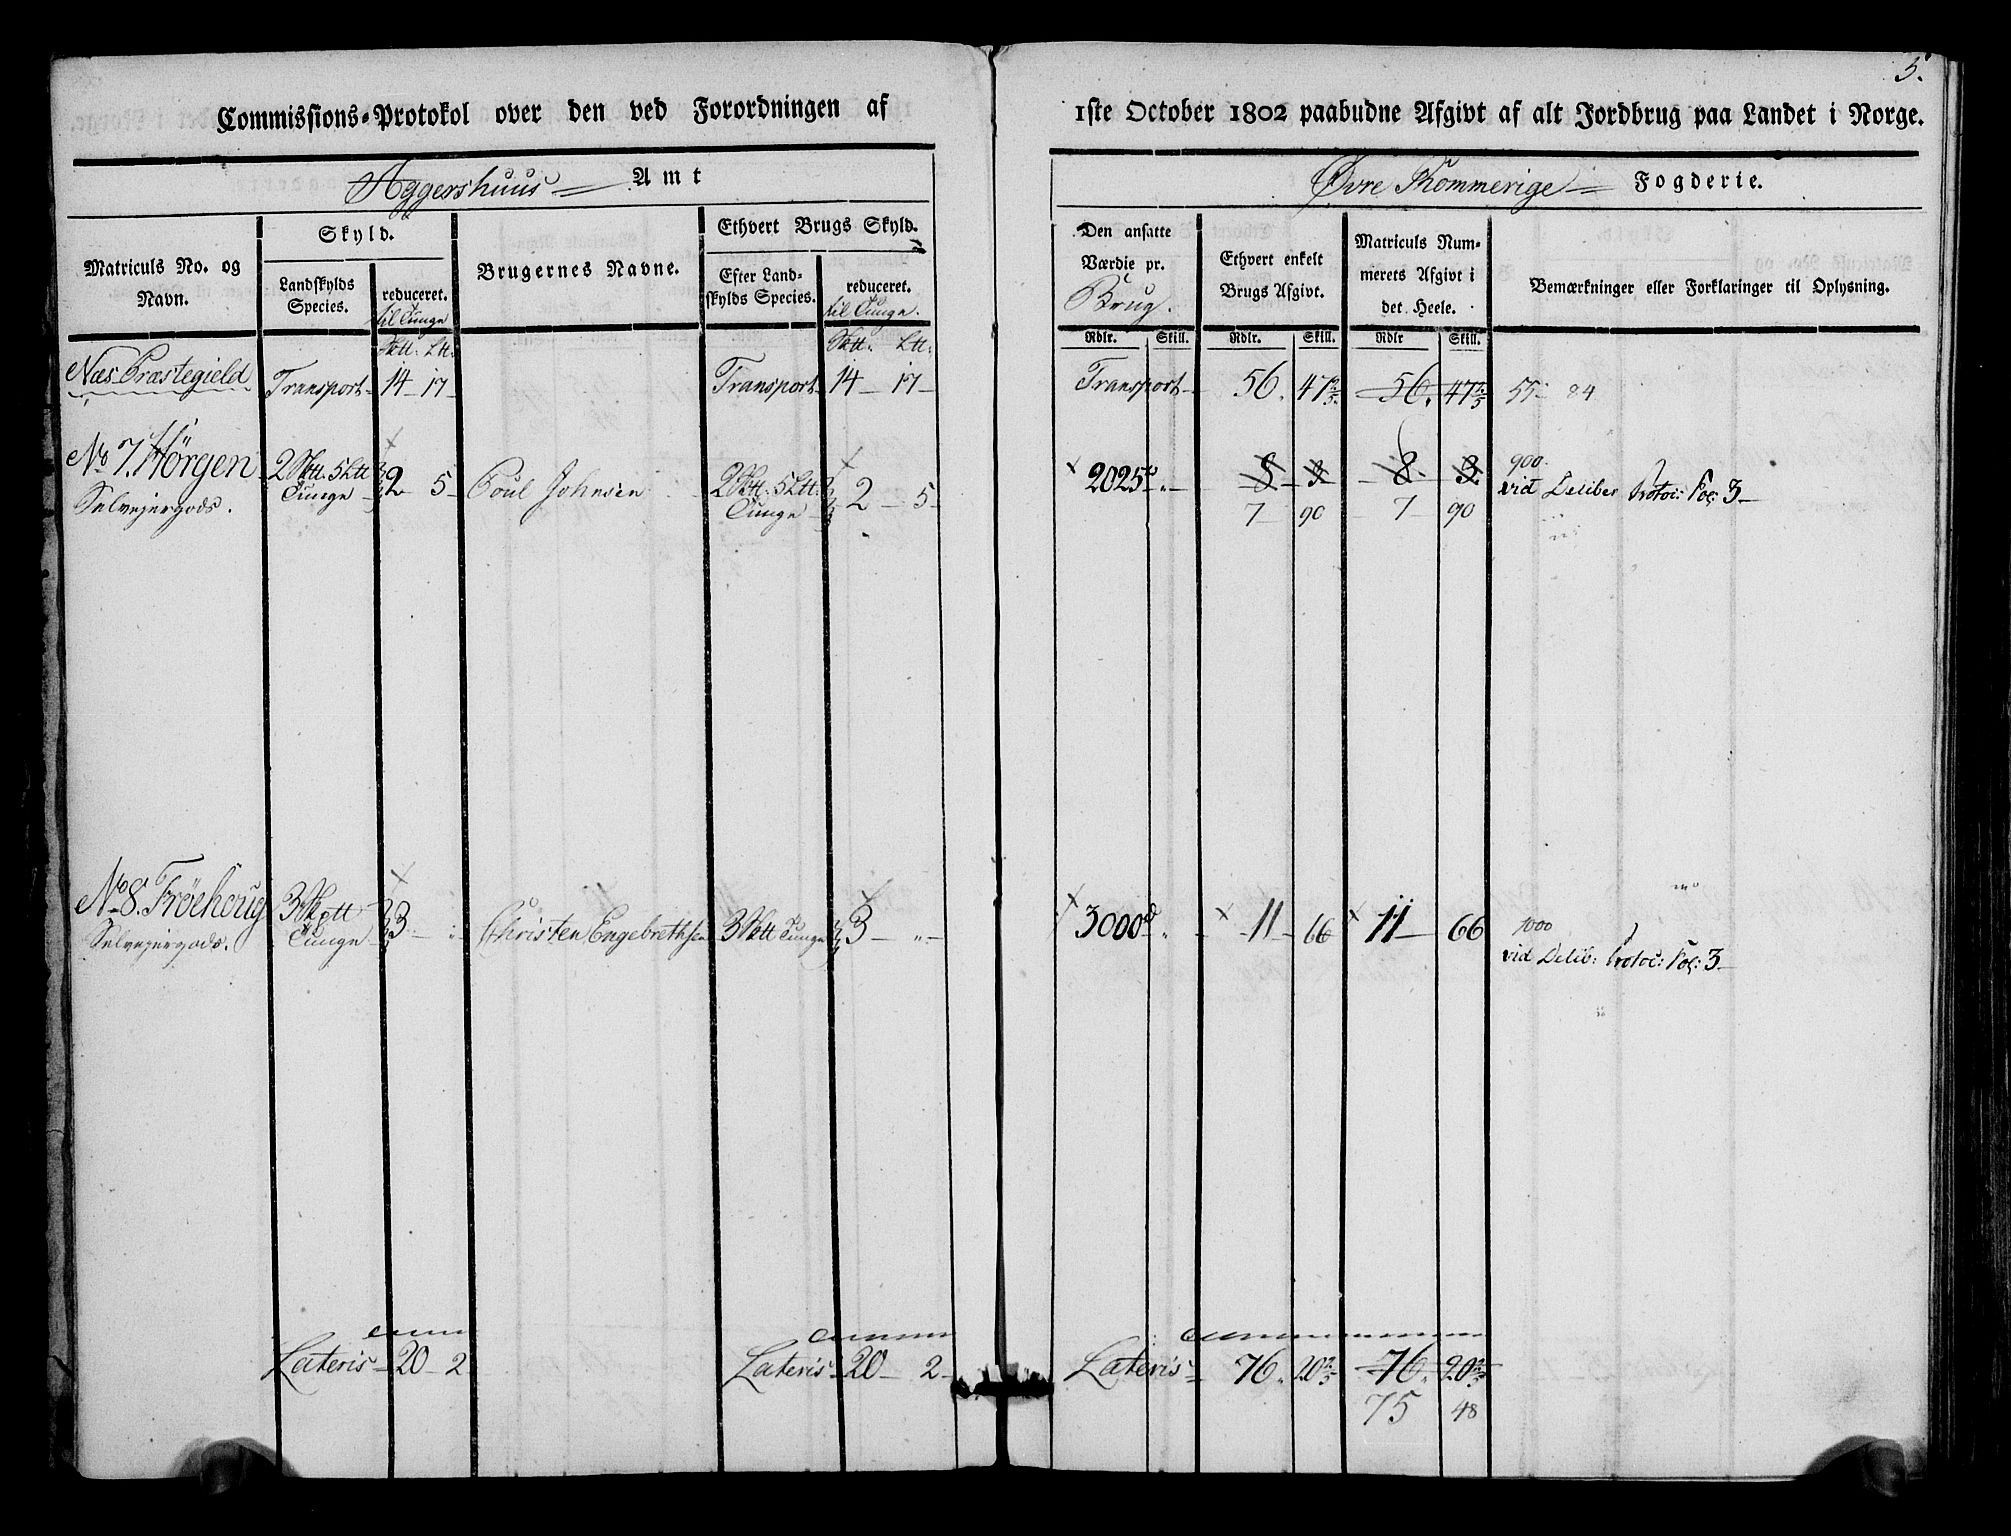 5.
Commissions-Protokol over den ved Forordningen af 1ste October 1802 paabudne Afgivt af alt Jordbrug paa Landet i Norge.
Aggershuus Amt
Øvre Rommerige Fogderie.
Matriculs No. og Navn.
Skyld.
Landskylds Species.
reduceret. til Tunge
Brugernes Navne.
Ethvert Brugs Skyld.
Efter Landskylds Species.
reduceret. til Tunge.
Den ansatte Værdie pr. Brug.
Ethvert enkelt Brugs Afgivt.
Matriculs Nummerets Afgivt i det Heele.
Bemærkninger eller Forklaringer til Oplysning.
Sktt. Ltt. Sktt. Ltt. Rdlr. Skill. Rdlr. Skill. Rdlr Skill.
Næs Præstegield Transport 14 17 Transport 14 17 Transport 56. 47 2/5 56. 47 2/5 55 84
No 7. Hørgen 2 Sktt. 5 Ltt 2 5 Poul Johnsen 2 Sktt. 5 Ltt. 2 5 2025 8 3 8 3 900
Selvejergods. Tunge Tunge 7 90 7 90 vid Deliber Protoc: Fol: 3
No 8. Frøehoug 3 Sktt 3 Christen Engebrethsen 3 Sktt Tunge 3 3000 11 66 11 66 1000
Selvejergods. Tunge vid Delib: Protoc: Fol: 3
Lateris 20 2 Lateris 20 2 Lateris 76. 20 2/5 76. 20 2/5
75 48